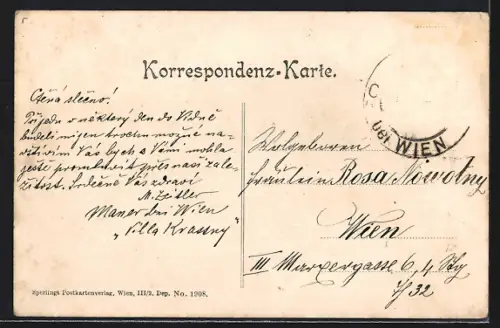 Korrespondenz-Karte.
Ctěná slečno!
Přijedu v některý den do Vídně
budeli mi jen trochu možné na-
vštívím Vás bych s Vámi mohla
ještě promluvit přes naši zále-
žitost. Srdečně Vás zdraví
M.
Mauer bei Wien
"Villa Krassny"
bei WIEN
Wolgeboren
Fräulein Rosa Nowotny
Wien
III Marxergasse 6, 4 Stg
32
Sperlings Postkartenverlag, Wien, III/3. Dep. No. 1208.